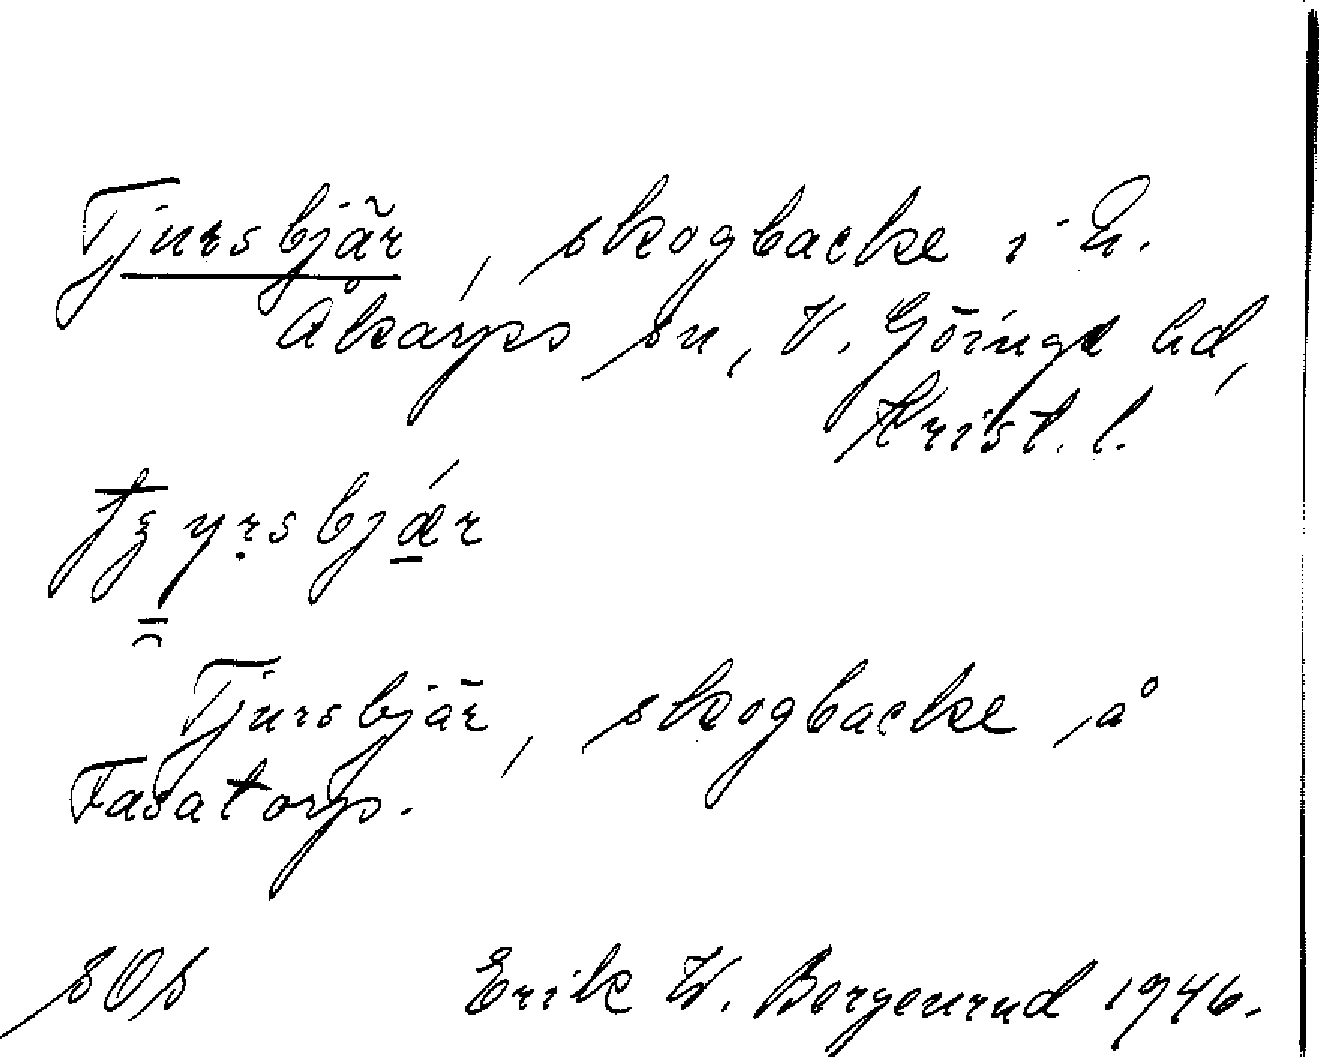 Tjursbjär, skogbacke i N.
Åkarps sn, V. Göinge hd,
Krist. l.
Tjursbjär, skogbacke å
Fasatorp.
sOs Erik W. Bergenrud 1946.